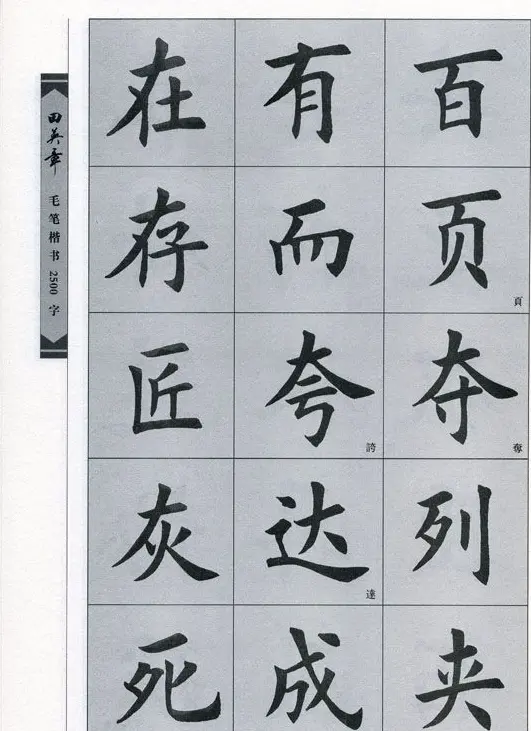 田英章
毛笔楷书2500字
在 有 百
存 而 页 頁
匠 夸 誇 夺 奪
灰 达 達 列
死 成 夹